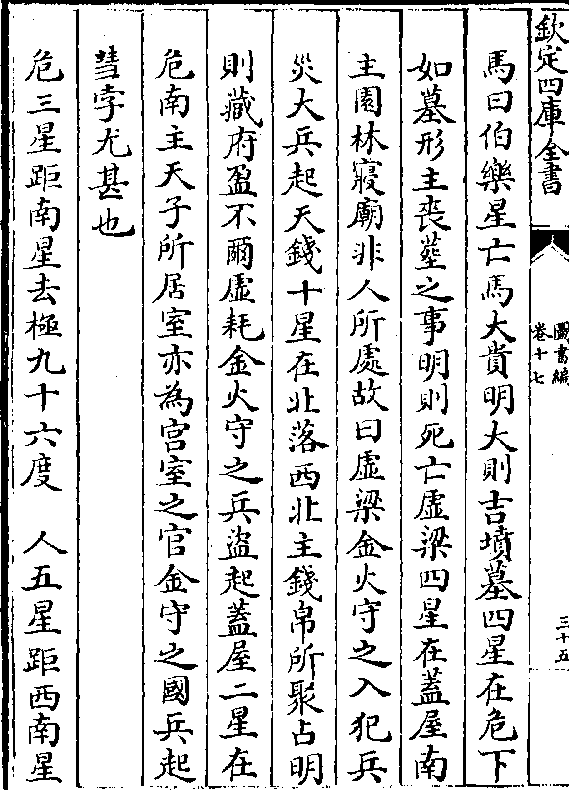 欽定四庫全書
圖書編
卷十七
三十五
馬曰伯樂星亡馬大貴明大則吉墳墓四星在危下
如墓形主喪塟之事明則死亡虛梁四星在蓋屋南
主園林寢廟非人所處故曰虛梁金火守之入犯兵
災大兵起天錢十星在北落西北主錢帛所聚占明
則藏府盈不爾虛耗金火守之兵盜起蓋屋二星在
危南主天子所居室亦為宫室之官金守之國兵起
彗孛尤甚也
危三星距南星去極九十六度　人五星距西南星